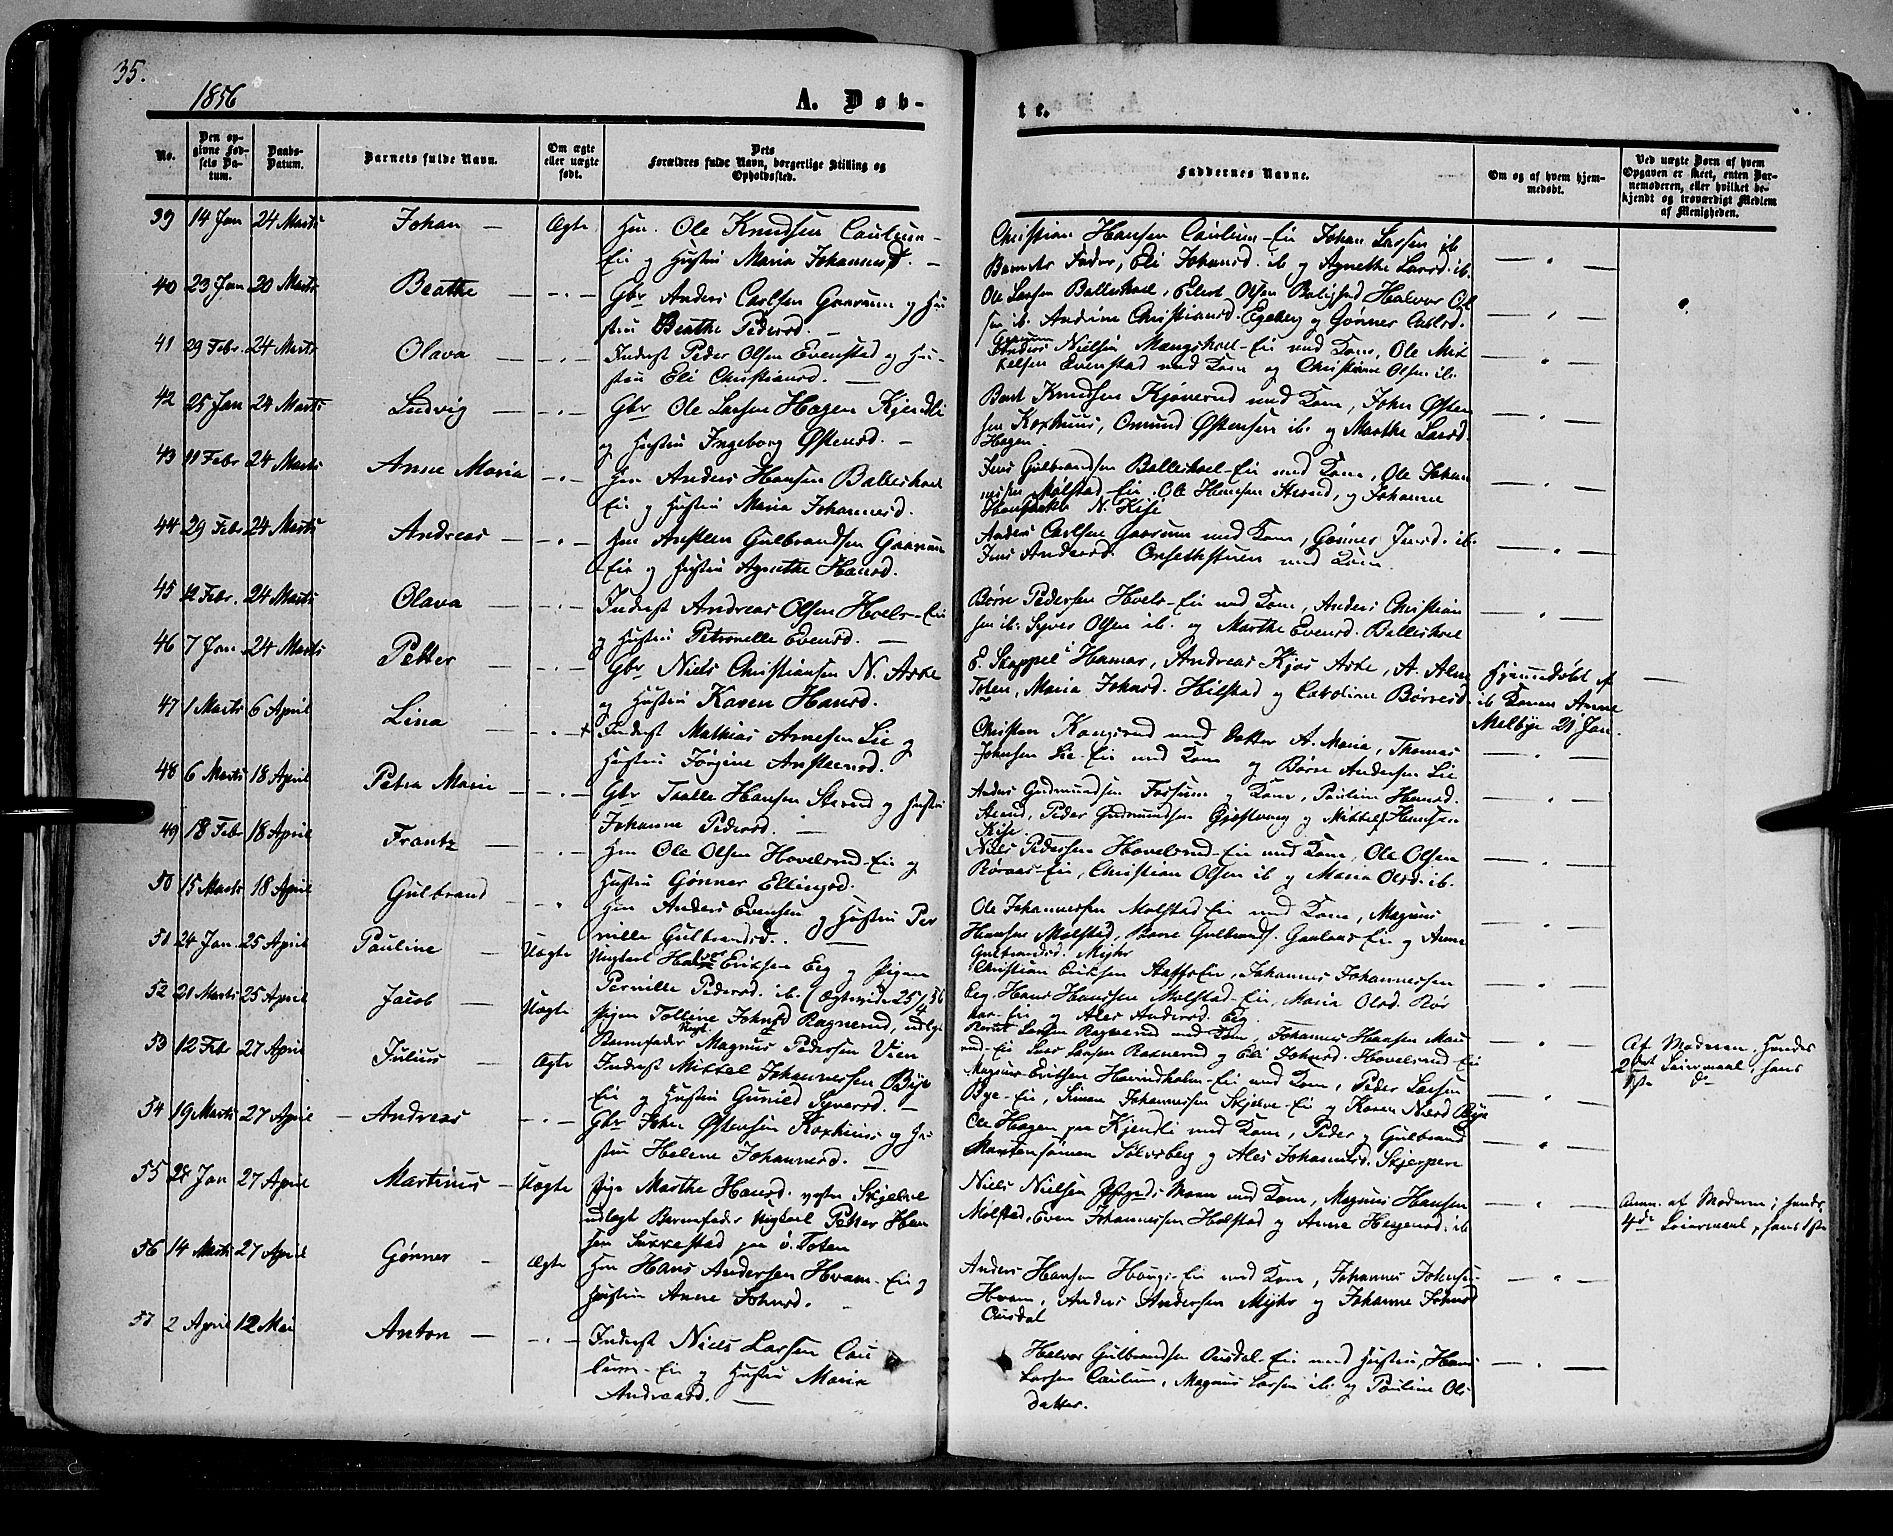 35.
1856
A. Døb-
te.
No.
Den opgivne Fødsels Datum.
Daabs-Datum.
Barnets fulde Navn.
Om ægte eller uægte født.
Dets Forældres fulde Navn, borgerlige Stilling og Opholdssted.
Faddernes Navne.
Om og af hvem hjemmedøbt.
Ved uægte Børn af hvem Opgaven er skeet, enten Barnemoderen, eller hvilket bekjendt og troværdigt Medlem af Menigheden.
39 14 Jan 24 Marts Johan — Ægte Hm. Ole Knudsen Caulum-
Eie og Hustru Maria Johannesd. —
Christian Hansen Caulum-Eie Johan Larsen ib.
Barnets Fader, Eli Johansd. ib og Agnethe Larsd. ib.
40 23 Jan 20 Marts Beathe — Gbr Anders Carlsen Gaarum og Hu-
stru Beathe Pedersd. —
Ole Larsen Balleshoel, Elert Olsen Bolighed Halvor Ol
sen ib. Andrine Christiansd. Egeberg og Gønner Carlsd.
Gaarum
41 29 Febr. 24 Marts Olava — Inderst Peder Olsen Evenstad og Hu-
stru Eli Christiansd. —
Anders Nielsen Mængshoel-Eie med Kone, Ole Mik
kelsen Evenstad med Kone og Christian Olsen ib.
42 25 Jan 24 Marts Ludvig — Gbr Ole Larsen Hagen Kjendli
og Hustru Ingeborg Østensd. —
Knudsen Kjønerud med Kone, John Østen
sen Koxhuus, Omund Østensen ib. og Marthe Larsd.
Hagen
43 11 Febr 24 Marts Anne Maria — Hm Anders Hansen Balleshoel
Eie og Hustru Maria Johannesd.
Jens Gulbrandsen Balleshoel-Eie med Kone, Ole Johan
nesen Molstad-Eie, Ole Hansen Strand, og Johanne
N. Kise
44 29 Febr 24 Marts Andreas — Hm Ansten Gulbrandsen Gaarum
Eie og Hustru Agnethe Hansd.
Anders Carlsen Gaarum med Kone, Gønner Jensd. ib.
Jens Andersd. Onsethstuen med Kone.
45 12 Febr. 24 Marts Olava — Inderst Andreas Olsen Hoels-Eie
og Hustru Petronelle Evensd. —
Børre Pedersen Hoels-Eie med Kone, Anders Christian
sen ib. Syver Olsen ib. og Marthe Evensd. Balleshoel
46 7 Jan 24 Marts Petter — Gbr Niels Christiansen N. Aske
og Hustru Karen Hansd.
E. Stappel i Hamar, Andreas Kjos Aske, A. Alm
Toten, Maria Johnsd. Hilstad og Caroline Børresd.
Hjemmedøbt af
ib Konen Anne
Melbye 29 Jan.
47 1 Marts 6 April Lina — Inderst Mathias Arnesen Lie og
Hustru Jørgine Anstensd.
Christen Kongsrud med Datter A. Maria, Thomas
Johnsen Lie-Eie med Kone og Børre Andersen Lie
48 6 Marts 18 April Petra Marie — Gbr Tralle Hansen Strand og Hustru
Johanne Pedersd. —
Anders Gudmundsen Fossum og Kone, Pauline Hansd.
Strand, Peder Gudmundsen Gjestvang og Mikkel Hansen
Kise.
49 18 Febr 18 April Frantz — Hm Ole Olsen Hovelsrud-Eie og
Hustru Gønner Ellingsd.
Niels Pedersen Hovelsrud-Eie med Kone, Ole Olsen
Røraas-Eie, Christian Olsen ib og Maria Olsd. ib.
50 15 Marts 18 April Gulbrand — Hm Anders Evensen og Hustru Per
nille Gulbrandsd. —
Ole Johannesen Molstad Eie med Kone, Magnus
Hansen Molstad, Børre Gulbrands. Gaalaas-Eie og Anne
Gulbrandsd. Myhr
51 24 Jan. 25 April Pauline — Uægte Ungkarl Halvor Eriksen Eeg og Pigen
Pernille Pedersd. ib. (Ægteviede 25/4 56
Christian Eriksen Stafs Eie, Johannes Johannessen
Eeg, Hans Hanssen Molstad-Eie, Maria Olsd. Rør
aas-Eie og Ales Andersd. Eeg.
52 21 Marts 25 April Jacob — Uægte Pigen Tolline Johnsd Ragnerud, udlgt
Barnefader Ungk. Magnus Pedersen Vien
Larsen Ragnerud med Kone, Johannes Hansen
rud-Eie Lars Larsen Ragnerud og Eli Johnsd. Hovelsrud-Eie
Af Moderen. Hendes
2det Leiermaal, hans
1ste do
53 12 Feb 27 April Julius — Ægte Inderst Mikkel Johannessen Bye
Eie og Hustru Gunild Syversd. —
Magnus Eriksen Horindholm-Eie med Kone, Peder Larsen
Bye-Eie, Simen Johannessen Skjelve-Eie og Karen Nielsd Bye
54 19 Marts 27 April — Andreas — Gbr John Østensen Koxhuus og Hu-
stru Helene Johannesd. —
Ole Hagen paa Kjendli med Kone, Peder og Gulbrand
Mortensønner Sølvsberg og Ales Johannesd. Skjerpen
55 28 Jan 27 April Martinus — Uægte Pige Marthe Hansd. vestre Skjelve
udlagt Barnefader Ungkarl Petter Han
sen Sukkestad paa ø. Toten
Niels Nielsen med Kone, Magnus Hansen
Molstad, Even Johannessen Holstad og Anne Helgesd. ib
Anm. af Moderen; hendes
4de Leiermaal, hans 1ste
56 14 Marts 27 April Gønner — Ægte Hm Hans Andersen Hvam-Eie og
Hustru Anne Johnsd.
Anders Hansen Haugs-Eie med Kone, Johannes Johnsen
Hvam, Anders Andersen Myhr og Johanne Johnsd
Ousdal
57 2 April 12 Mai Anton — Inderst Niels Larsen Cau
lum-Eie og Hustru Maria
Andersd. —
Halvor Gulbrandsen Ousdal-Eie med Hustru, Hans
Larsen Caulum, Magnus Larsen ib. og Pauline Ols
datter.